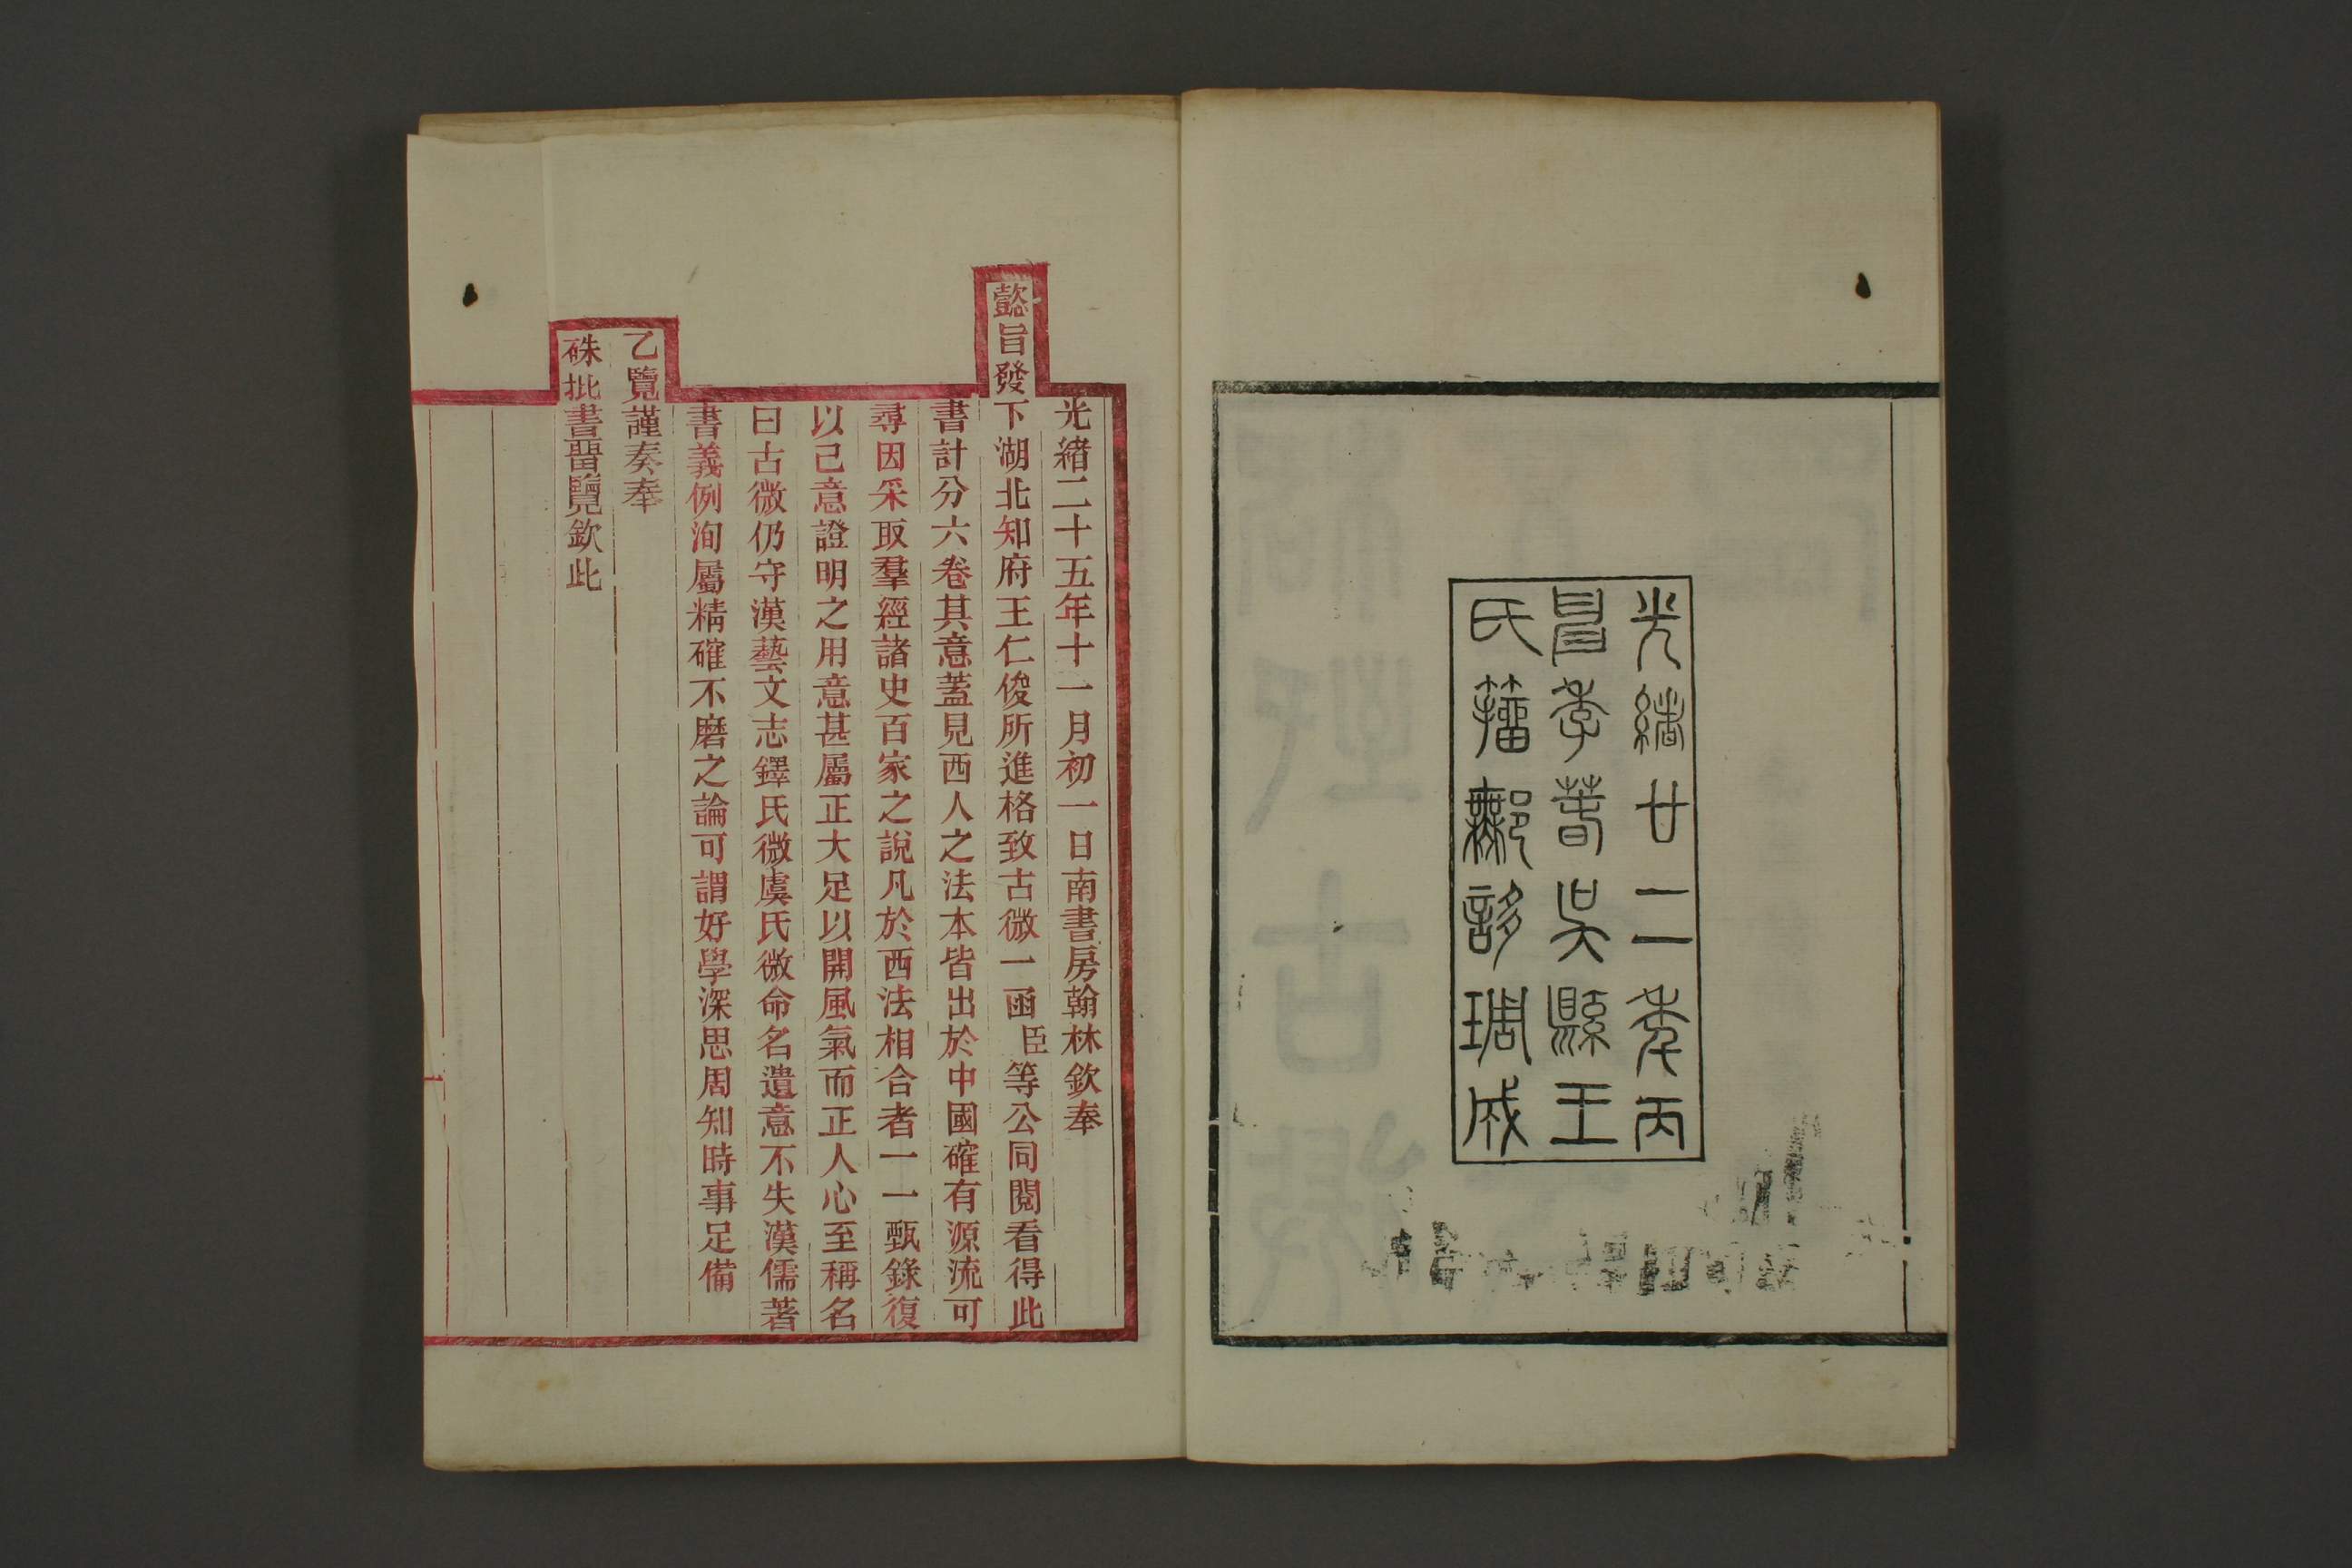 光緒廿二秊丙
申季萅吳縣王
氏籀鄦誃琱成
光緒二十五年十一月初一日南書房翰林欽奉
懿旨發下湖北知府王仁俊所進格致古微一函臣等公同閱看得此
書計分六卷其意蓋見西人之法本皆出於中國確有源流可
尋因采取羣經諸史百家之說凡於西法相合者一一甄錄復
以己意證明之用意甚屬正大足以開風氣而正人心至稱名
曰古微仍守漢藝文志鐸氏微虞氏微命名遺意不失漢儒著
書義例洵屬精確不磨之論可謂好學深思周知時事足備
乙覽謹奏奉
硃批書畱覽欽此